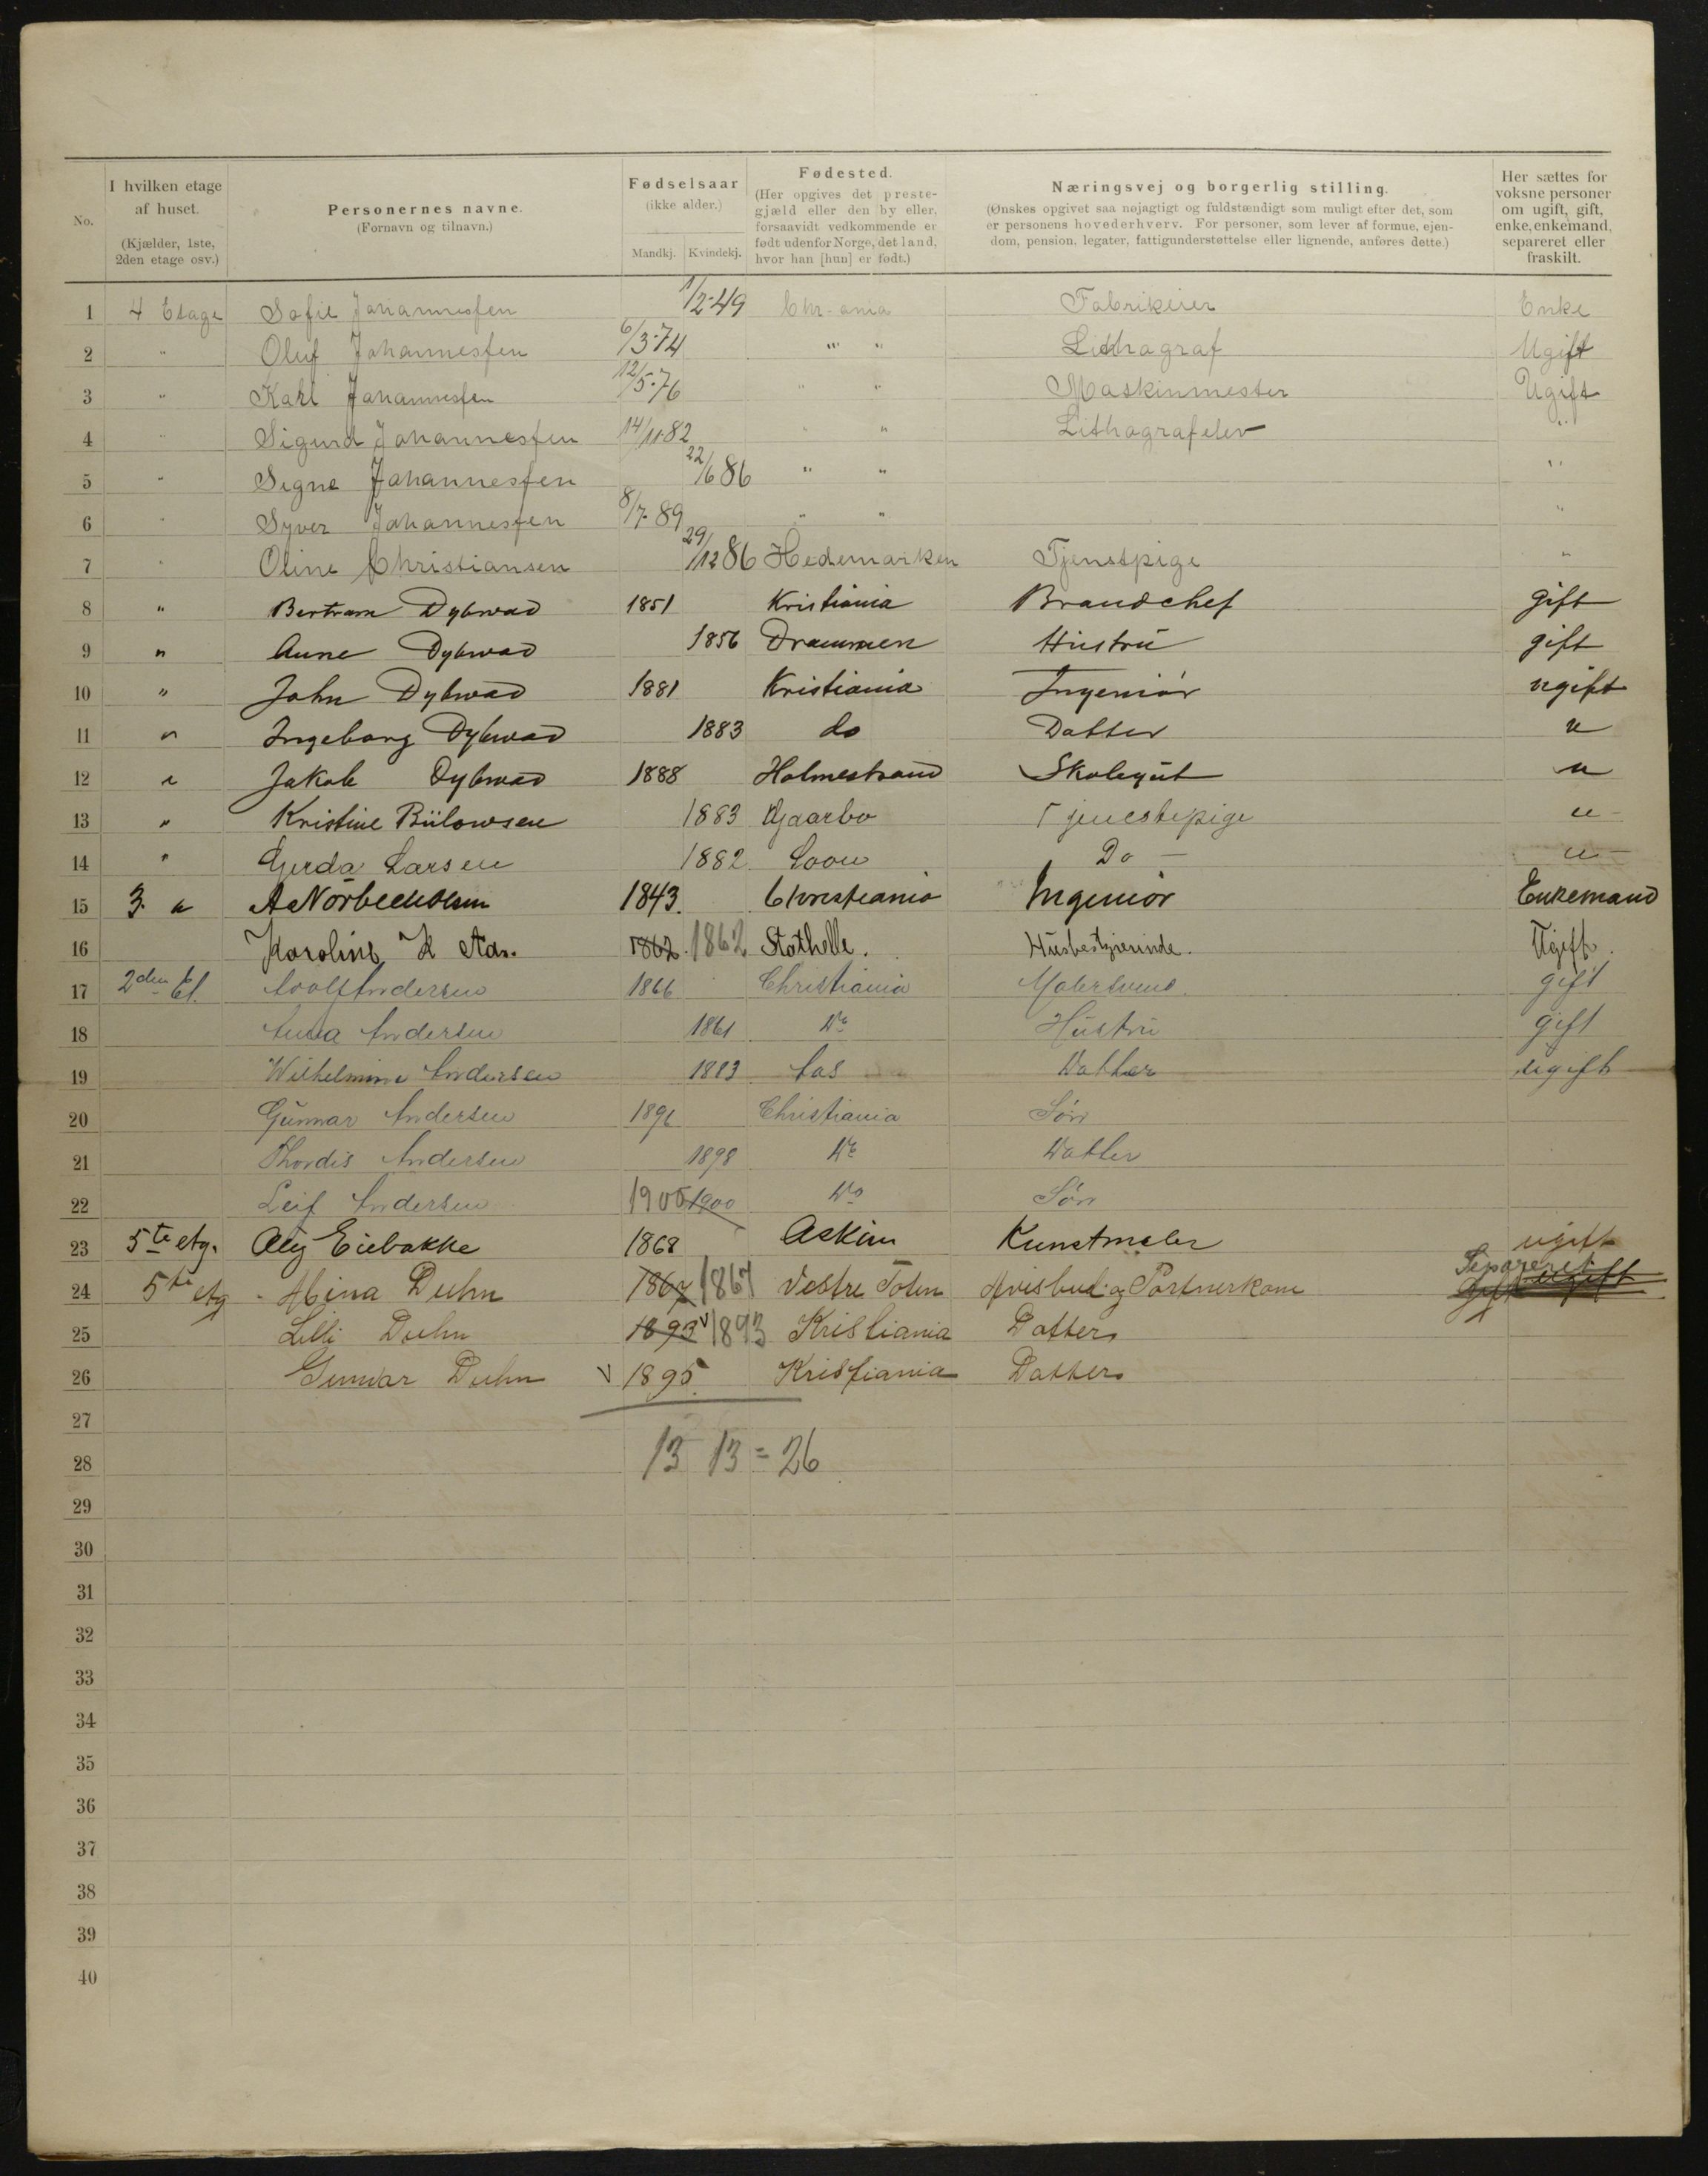 No.
I hvilken etage af huset. (Kjælder, 1ste, 2den etage osv.)
Personernes navne. (Fornavn og tilnavn.)
Fødselsaar (ikke alder.) Mandkj. Kvindekj.
Fødested. (Her opgives det prestegjæld eller den by eller, forsaavidt vedkommende er født udenfor Norge, det land, hvor han [hun] er født.)
Næringsvej og borgerlig stilling. (Ønskes opgivet saa nøjagtigt og fuldstændigt som muligt efter det, som er personens hovederhverv. For personer, som lever af formue, ejendom, pension, legater, fattigunderstøttelse eller lignende, anføres dette.)
Her sættes for voksne personer om ugift, gift, enke, enkemand, separeret eller fraskilt.
1 4 Etage Sofie Johannesfen 1/2-49 Chr-ania Fabrikeier Enke
2 " Oluf Johannesfen 6/3-74 " " Lithograf Ugift
3 " Karl Johannesfen 12/5-76 " " Maskinmester Ugift
4 " Sigurd Johannesfen 14/11-82 " " Lithografelev "
5 " Signe Johannesfen 22/6 86 " " "
6 " Syver Johannesfen 8/7-89 " " "
7 " Oline Christiansen 29/12 86 Hedemarken Tjenstpige "
8 " Bertram Dybwad 1851 Kristiania Brandchef gift
9 " Anne Dybwad 1856 Drammen Hustru gift
10 " John Dybwad 1881 Kristiania Ingeniør ugift
11 " Ingeborg Dybwad 1883 do Datter u
12 " Jakob Dybwad 1888 Holmestrand Skolegut u
13 " Kristine Bülowsen 1883 Tjenestepige u
14 " Gerda Larsen 1882 Soon Do — u —
15 3. " A Nørbech Olsen 1843. Christiania Ingeniør Enkemand
16 Karoline K Aas. 1862. 1862 Stathelle. Husbestjrerinde. Ugift.
17 2den Et. Adolf Andersen 1866 Christiania Malersvend. gift
18 Anna Andersen 1861 Do Hustru gift
19 Wilhelmine Andersen 1883 Aas Datter ugift
20 Gunnar Andersen 1896 Christiania Søn
21 Thordis Andersen 1898 Do Datter
22 Leif Andersen 1900 1900 Do Søn
23 5te etg. Eiebakke 1868 Askim Kunstmaler ugift
24 5te etg - Mina Duhn 1867 1867 Vestre Toten Avisbud og Portnerkone Separeret gift ugift
25 Lilli Duhn 1893 v 1893 Kristiania Datter
26 Gunvar Duhn v 1895. Kristiania Datter
27
28 13 13 = 26
29
30
31
32
33
34
35
36
37
38
39
40